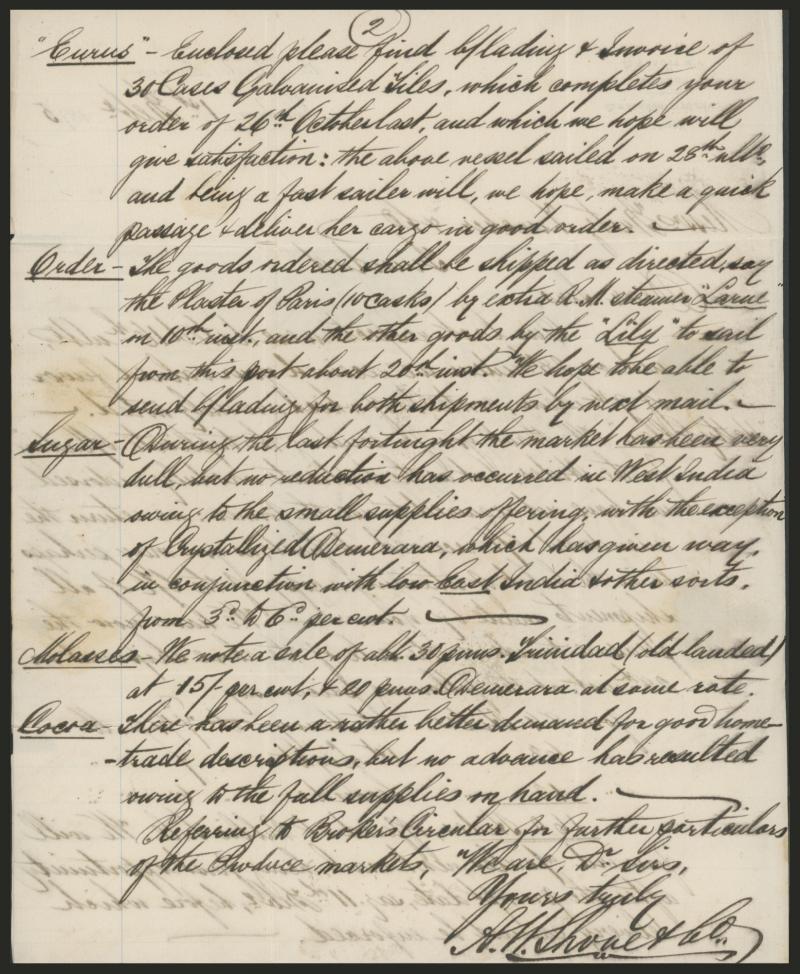 2
"Eurus" - Enclosed please find b/lading & Invoice of
30 Cases Galvanised Tiles, which completes your
order of 26th October last, and which we hope will
give satisfaction: the above vessel sailed on 28th ulto,
and being a fast sailer will, we hope, make a quick
passage & deliver her cargo in good order.
Order - The goods ordered shall be shipped as directed, say
the Plaster of Paris (10 casks) by extra R. M. steamer "Larne"
on 10th inst., and the other goods by the "Lily" to sail
from this port about 20th inst. We hope to be able to
send b/lading for both shipments by next mail. -
Sugar - During the last fortnight the market has been very
dull, but no reduction has occurred in West India
owing to the small supplies offering, with the exception
of Crystallized Demerara, which has given way,
in conjunction with low East India & other sorts,
from 3d to 6d per cwt.
Molasses - We note a sale of abt. 30 puns. Trinidad (old landed)
at 15/- per cwt, & 20 puns Demerara at same rate.
Cocoa - There has been a rather better demand for good home-
-trade descriptions, but no advance has resulted
owing to the full supplies on hand.
Referring to Broker's Circular for further particulars
of the Produce markets, We are, Dr Sirs,
Yours truly
A. H. & Co.